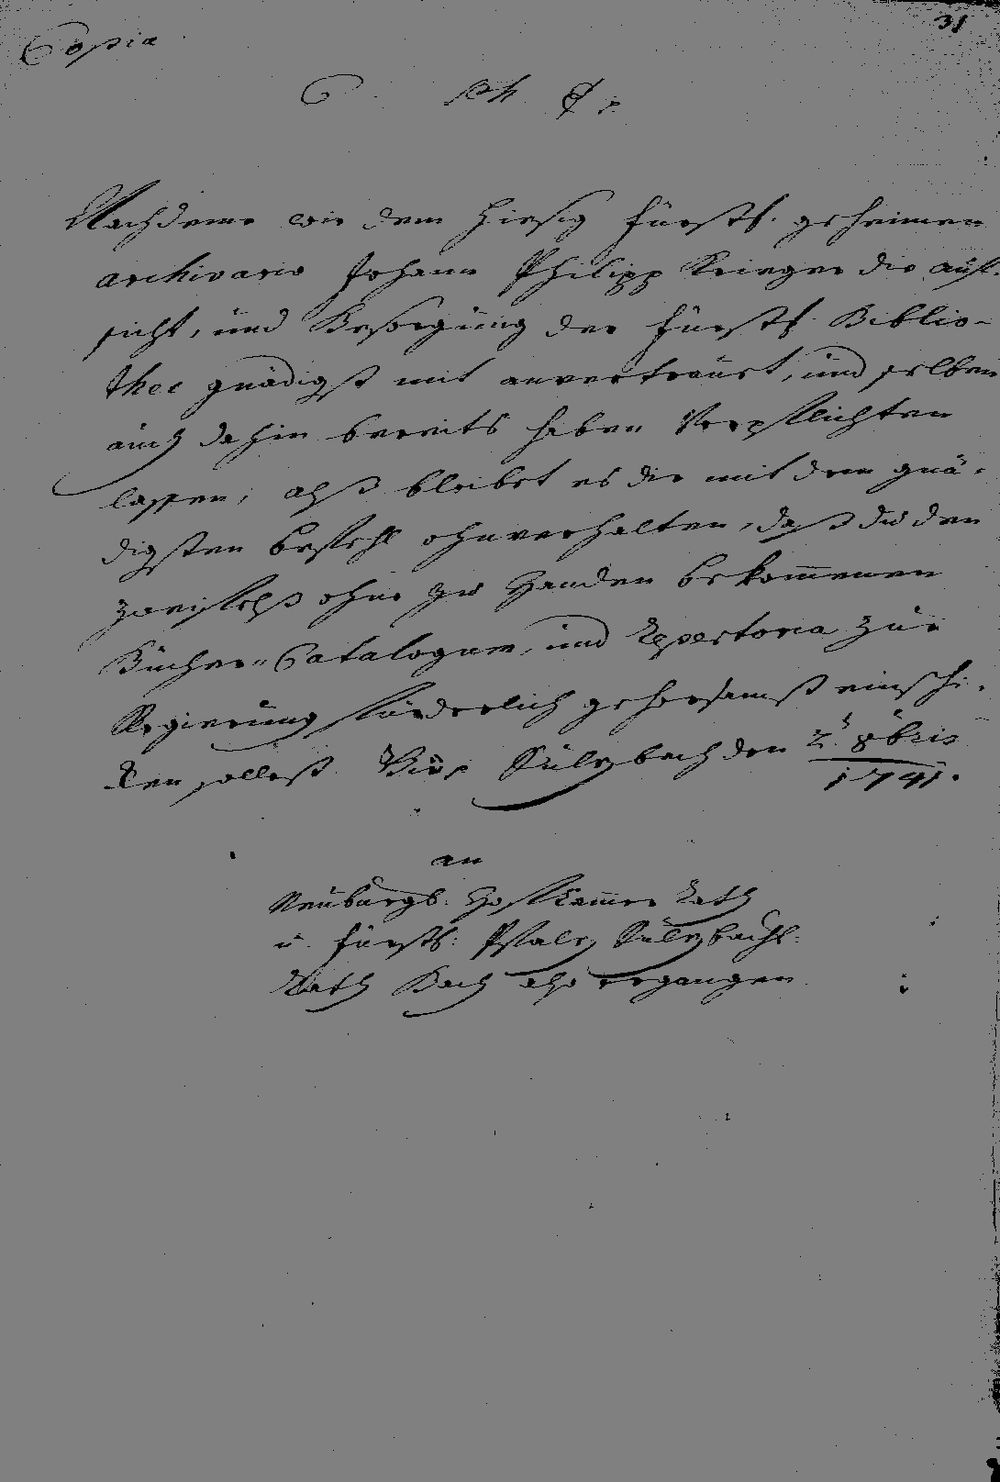 Copia
31
C
Nachdeme wir dem hiesig fürstl. geheimen
archivario Johann Philipp Krieger die auf-
sicht, und Besorgung der fürstl. Biblio-
thec gnädigst mit anvertrauet, und selben
auch dahin bereits haben Verpflichten
lassen; alß bleibet es dir mit dem gnä-
digsten befehl ohnverhalten, daß du den
zweifelß ohne zu Handen bekommenen
Bücher-Catalogum, und Repertoria zur
Regierung förderlich gehorsamst einschi-
cken sollest. Sulzbach den 2t 8bris
1741.
an
Neuburgl. Hofkammer Rath
u. fürstl: Pfalz Sulzbachl.
Rath Koch also ergangen